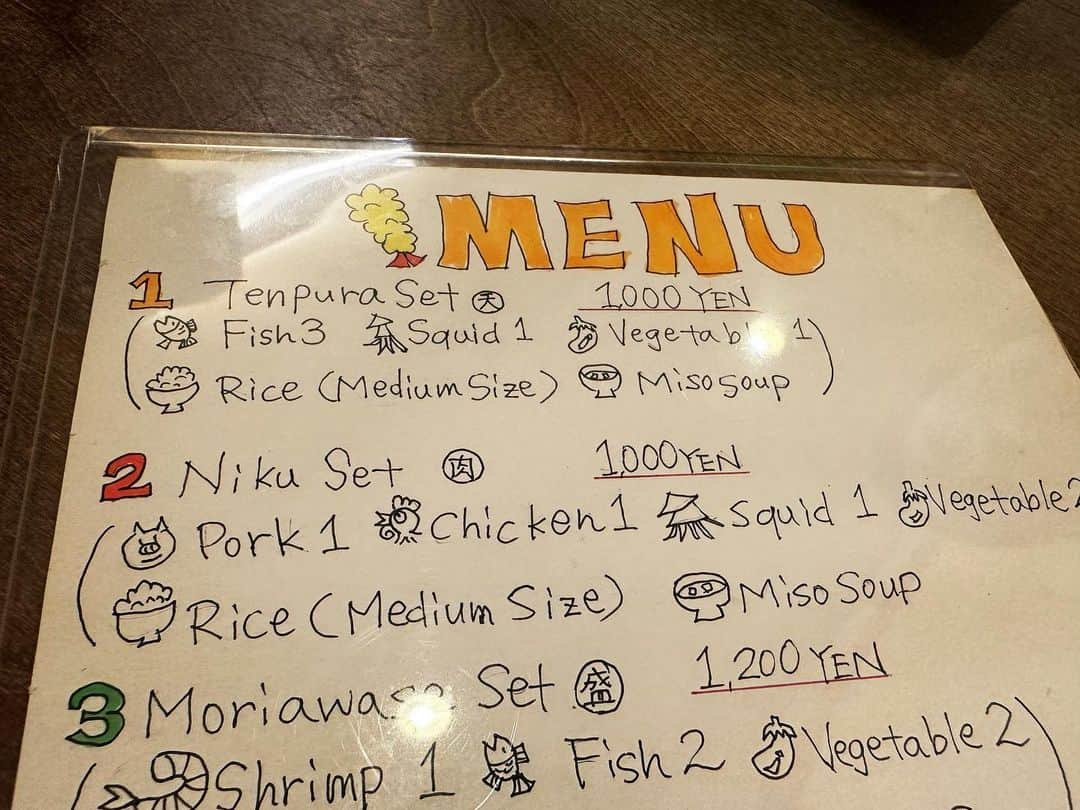 MENU
1 Tenpura Set 天 1,000 YEN
(Fish 3 Squid 1 Vegetable 1)
Rice (Medium Size) Miso Soup )
2 Niku Set 肉 1,000 YEN
(Pork 1 Chicken 1 Squid 1 Vegetable 2
Rice (Medium Size) Miso Soup
3 Moriawase Set 盛 1,200 YEN
(Shrimp 1 Fish 2 Vegetable 2)